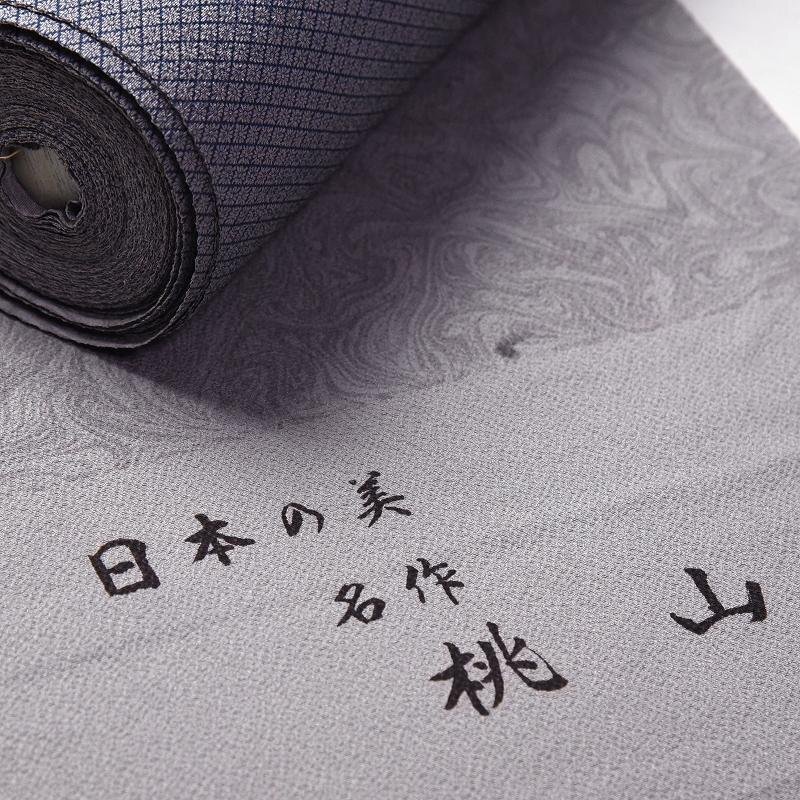 日本の美
名作
桃山